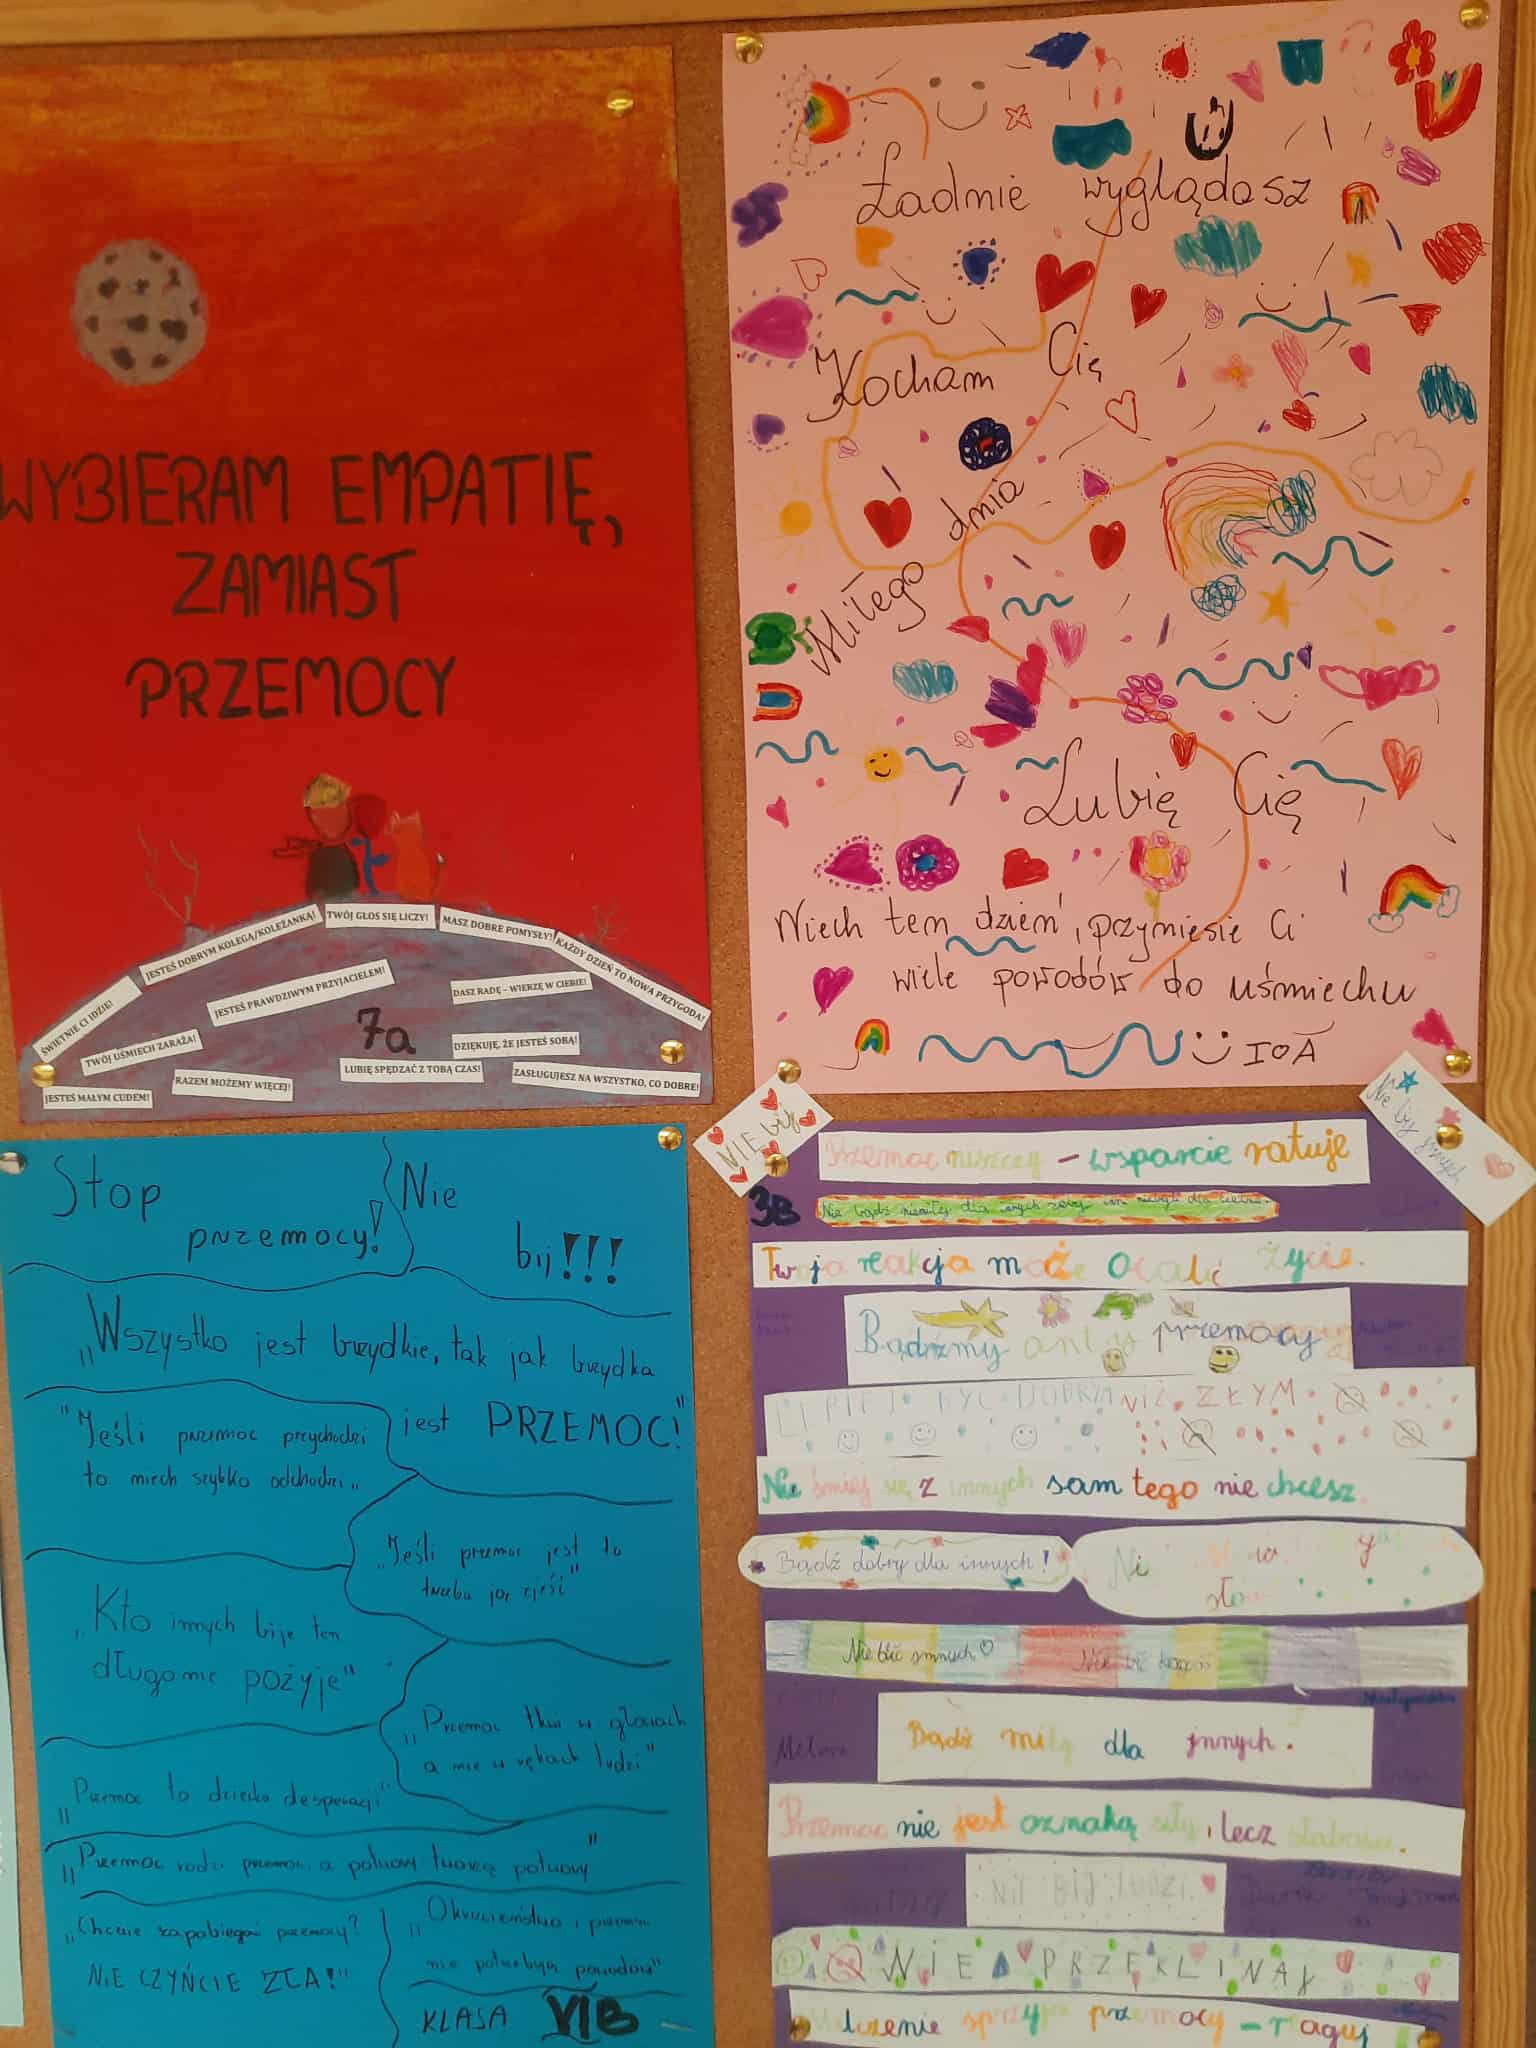 WYBIERAM EMPATIĘ,
ZAMIAST
PRZEMOCY
ŚWIETNIE CI IDZIE!
JESTEŚ DOBRYM KOLEGĄ/KOLEŻANKĄ!
TWÓJ GŁOS SIĘ LICZY!
MASZ DOBRE POMYSŁY!
KAŻDY DZIEŃ TO NOWA PRZYGODA!
JESTEŚ PRAWDZIWYM PRZYJACIELEM!
DASZ RADĘ – WIERZĘ W CIEBIE!
TWÓJ UŚMIECH ZARAŻA!
7a
DZIĘKUJĘ, ŻE JESTEŚ SOBĄ!
JESTEŚ MAŁYM CUDEM!
RAZEM MOŻEMY WIĘCEJ!
LUBIĘ SPĘDZAĆ Z TOBĄ CZAS!
ZASŁUGUJESZ NA WSZYSTKO, CO DOBRE!
Ładnie wyglądasz
Kocham Cię
Miłego dnia
Lubię Cię
Niech ten dzień, przyniesie Ci
wiele powodów do uśmiechu
IOA
Stop
przemocy!
Nie
bij!!!
„Wszystko jest brzydkie, tak jak brzydka
jest PRZEMOC!"
"Jeśli przemoc przychodzi
to niech szybko odchodzi„
„Jeśli przemoc jest to
trzeba ją
„Kto innych bije ten
długo nie pożyje"
„Przemoc tkwi w głowach
a nie w rękach ludzi"
„Przemoc to dziecko desperacji"
„Przemoc rodzi przemoc, a potwory tworzą potwory"
„Chcecie zapobiegać przemocy?
NIE CZYŃCIE ZŁA!"
„Okrucieństwo i przemoc
nie potrzebują powodów"
KLASA VIB
NIE bij
Nie bij innych
Przemoc niszczy – wsparcie ratuje
3B
Nie bądź niemiły dla innych żeby inni nie byli dla Ciebie.
Twoja reakcja może ocalić życie.
Bądźmy anty przemocy
LEPIEJ BYĆ DOBRYM NIŻ ZŁYM
Nie śmiej się z innych sam tego nie chcesz.
Bądź dobry dla innych!
Nie bić innych
Nie bić
Bądź miły dla innych.
Przemoc nie jest oznaką siły, lecz słabości.
NIE BIJ LUDZI.
NIE PRZEKLINAJ
Milczenie sprzyja przemocy – reaguj